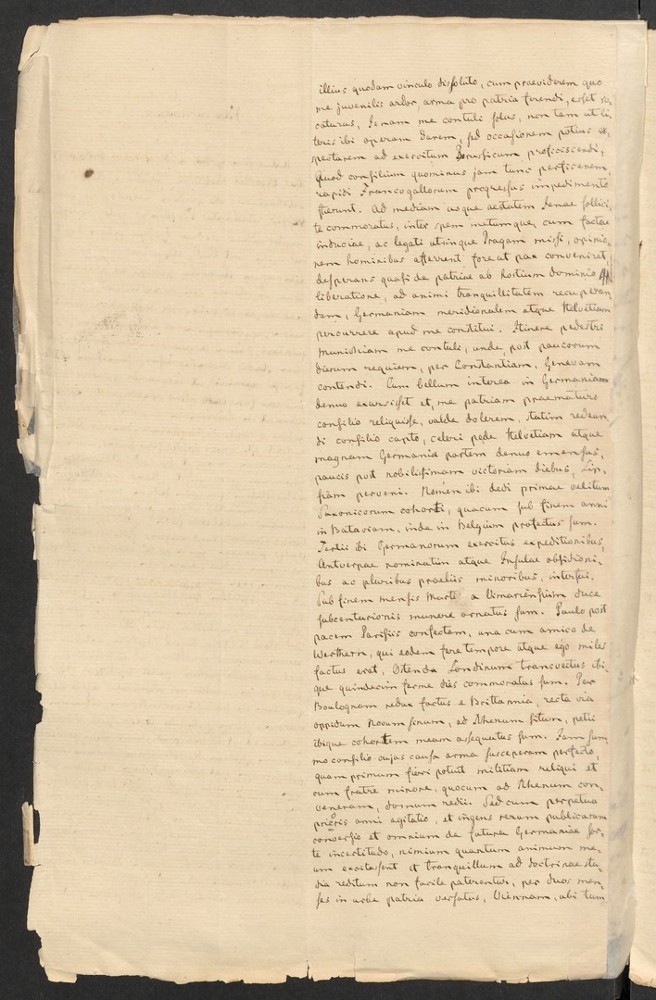 illius quodam vinculo dissoluto, cum praeviderem quo
me juvenilis ardor, arma pro patria ferendi, esset
caturus, Jenam me contuli solus, non tam ut li
teris ibi operam darem, sed occasionem potius ex,
spectarem ad exercitum Borussicum proficiscendi,
Quod consilium quominus jam tunc perficerem,
rapidi Francogallorum progressus impedimento
fuerunt. Ad mediam usque aestatem Jenae sollici,
te commoratus, inter spem metumque, cum factae
induciae, ac legati utrinque Pragam missi, opinio,
nem hominibus afferrent fore ut pax conveniret,
desperans quasi de patriae ab hostium dominio
liberatione, ad animi tranquillitatem recuperan
dam, Germaniam meridionalem atque Helvetiam
percurrere apud me constitui. Itinere pedestri
Munichiam me contuli, unde, post paucorum
dierum requiem, per Constantiam, Genevam
contendi. Cum bellum interea in Germaniam
denuo exarsisset et, me patriam praematuro
consilio reliquisse, valde dolerem, statim redeun,
di consilio capto, celeri pede Helvetiam atque
magnam Germaniae partem denuo emensus,
paucis post nobilissimam victoriam diebus, Lip,
siam perveni. Nomen ibi dedi primae velitum
Saxonicorum cohorti, quacum sub finem anni
in Bataviam, inde in Belgium profectus sum.
Tertii ibi Germanorum exercitus expeditionibus,
Antverpae nominatim atque Insulae obsidioni,
bus ac pluribus praeliis minoribus, interfui.
Sub finem mensis Martii a Vimariensium duce
subcenturionis munere ornatus sum. Paulo post
pacem Parisiis confectam, una cum amico de
Werthern, qui eodem fere tempore atque ego miles
factus erat, Ostenda Londinum transvectus ibi,
que quindecim ferme dies commoratus sum. Per
Boulognam redux factus e Brittannia, recta via
oppidum Novum senum, ad Rhenum situm, petii
ibique cohortem meam assequutus sum. Jam sum,
mo consilio cujus causa arma susceperam perfecto,
quam primum fieri potuit militiam reliqui et
cum fratre minore, quocum ad Rhenum con,
veneram, domum redii. Sed cum perpetua
prioris anni agitatio, et ingens rerum publicarum
conversio et omnium de futura Germaniae sor,
te incertitudo, nimium quantum animum me,
um excitassent et tranquillum ad doctrinae stu,
dia reditum non facile paterentur, per duos men,
ses in urbe patria versatus, Viennam, ubi tum